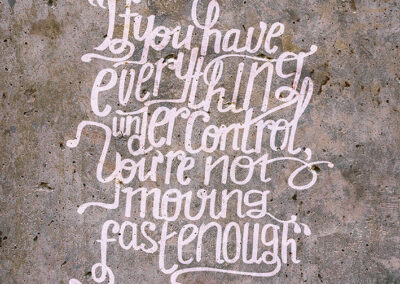 "If you have
everything
under control,
You're not
moving
fast enough"